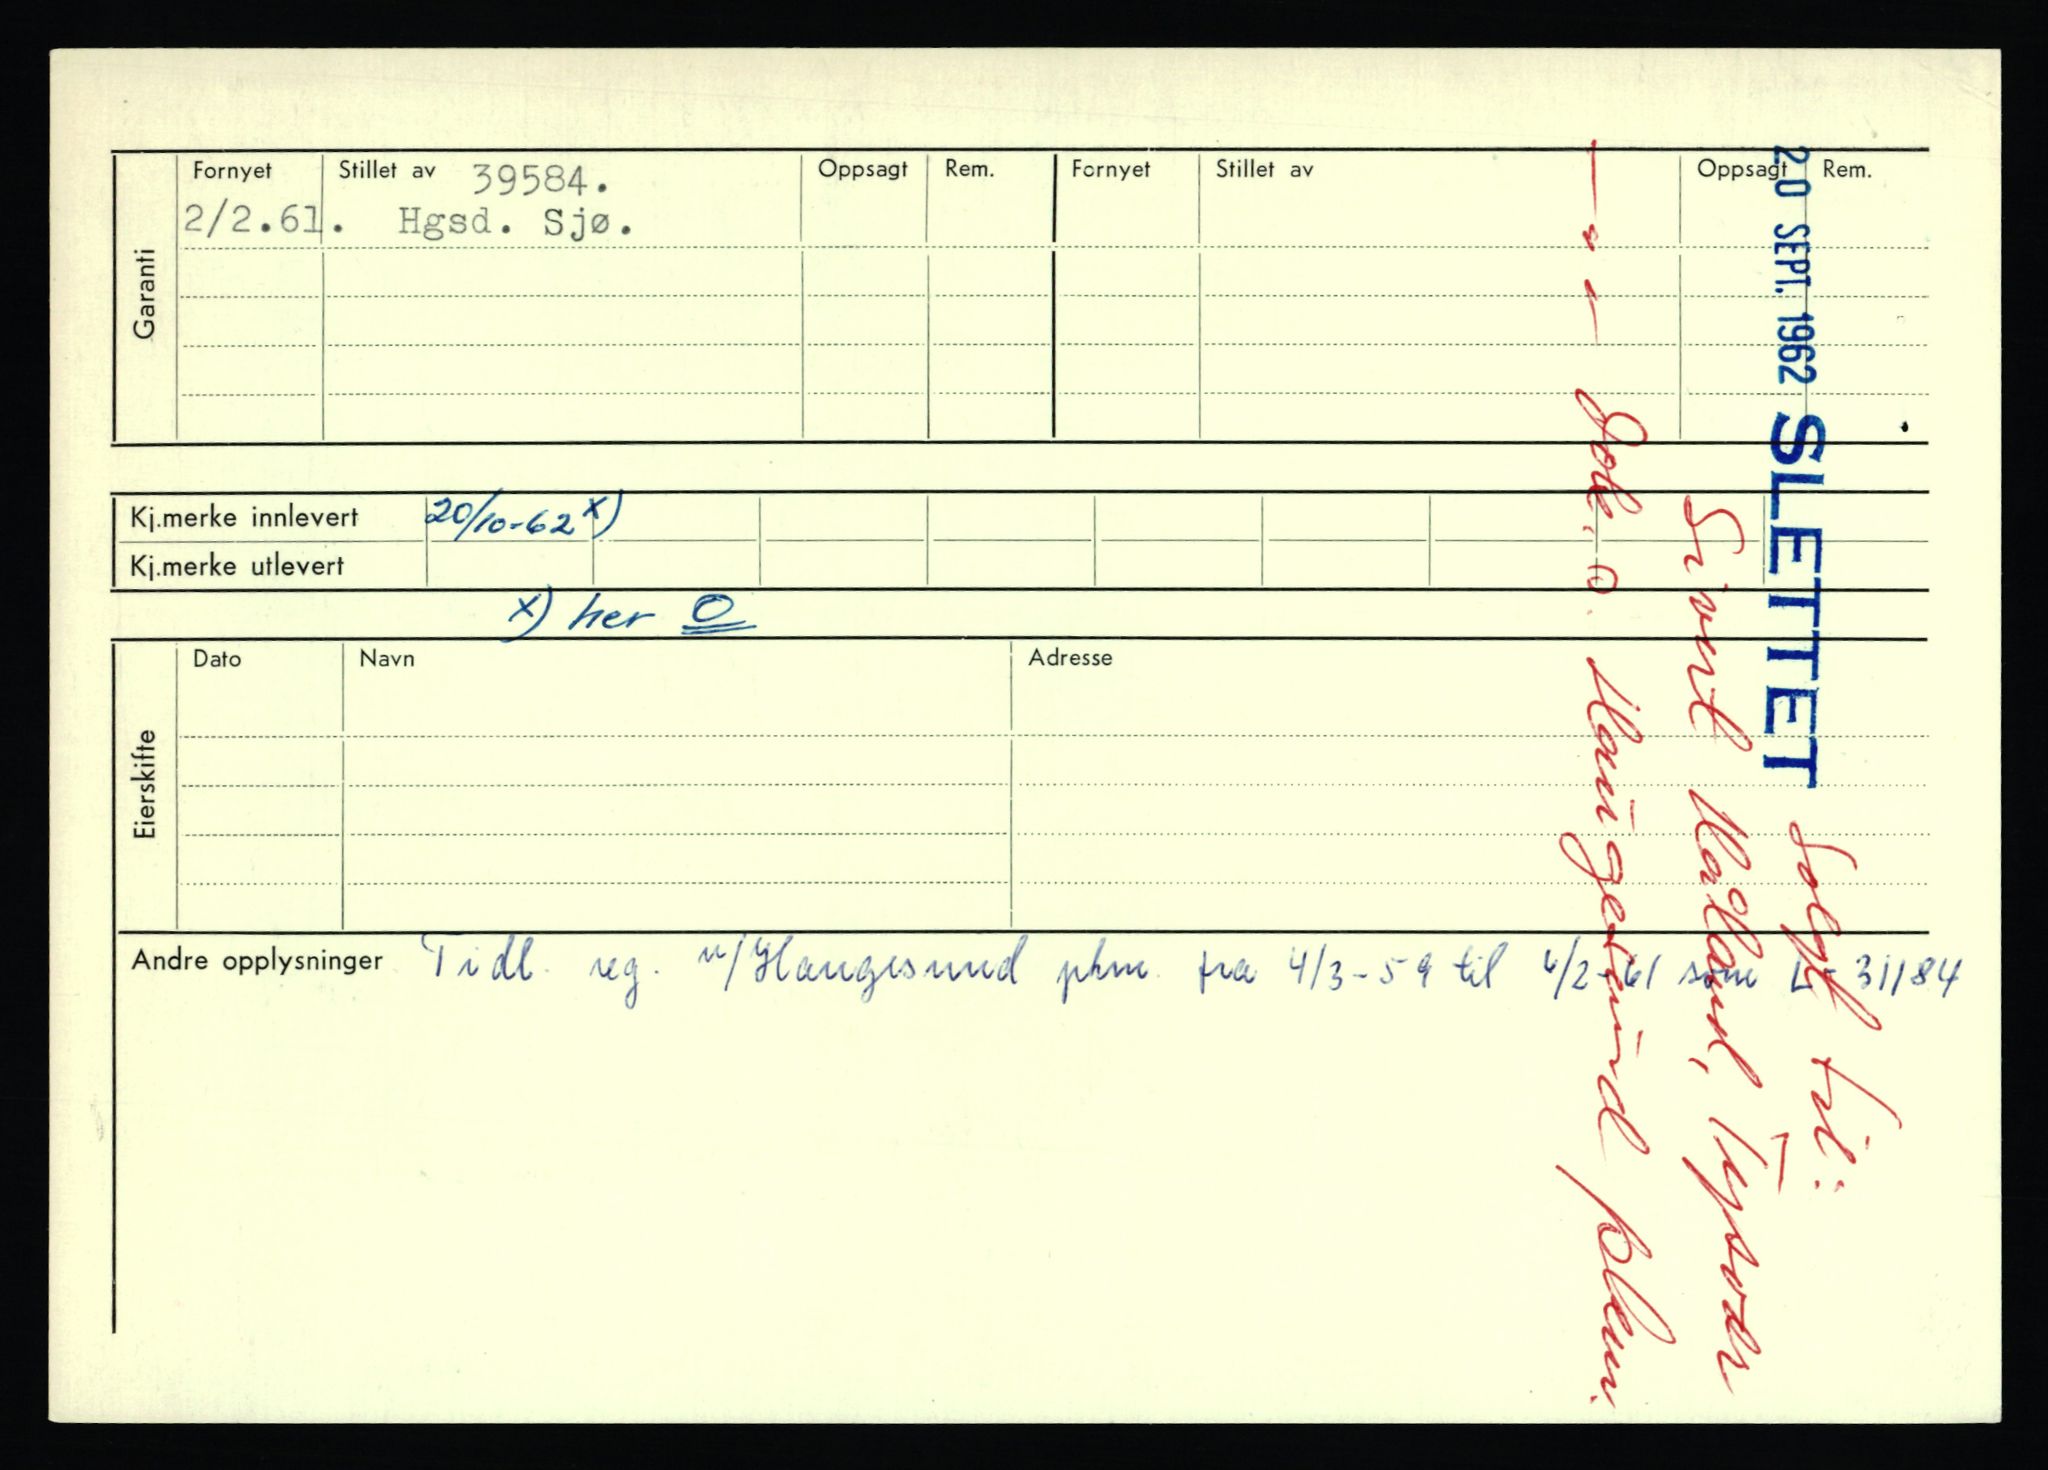 Garanti
Fornyet Stillet av 39584. Oppsagt Rem. Fornyet Stillet av Oppsagt Rem.
2/2.61. Hgsd. Sjø.
Kj.merke innlevert 20/10-62 x)
Kj.merke utlevert
x) her O
Eierskifte
Dato Navn Adresse
Andre opplysninger Tidl. reg. v/Haugesund pkm. fra 4/3-59 til 6/2-61 som L-31184
20 SEPT. 1962 SLETTET Solgt til:
Sivert Halland, Tysvær
— " — Gok, o. Haugesund pkm.